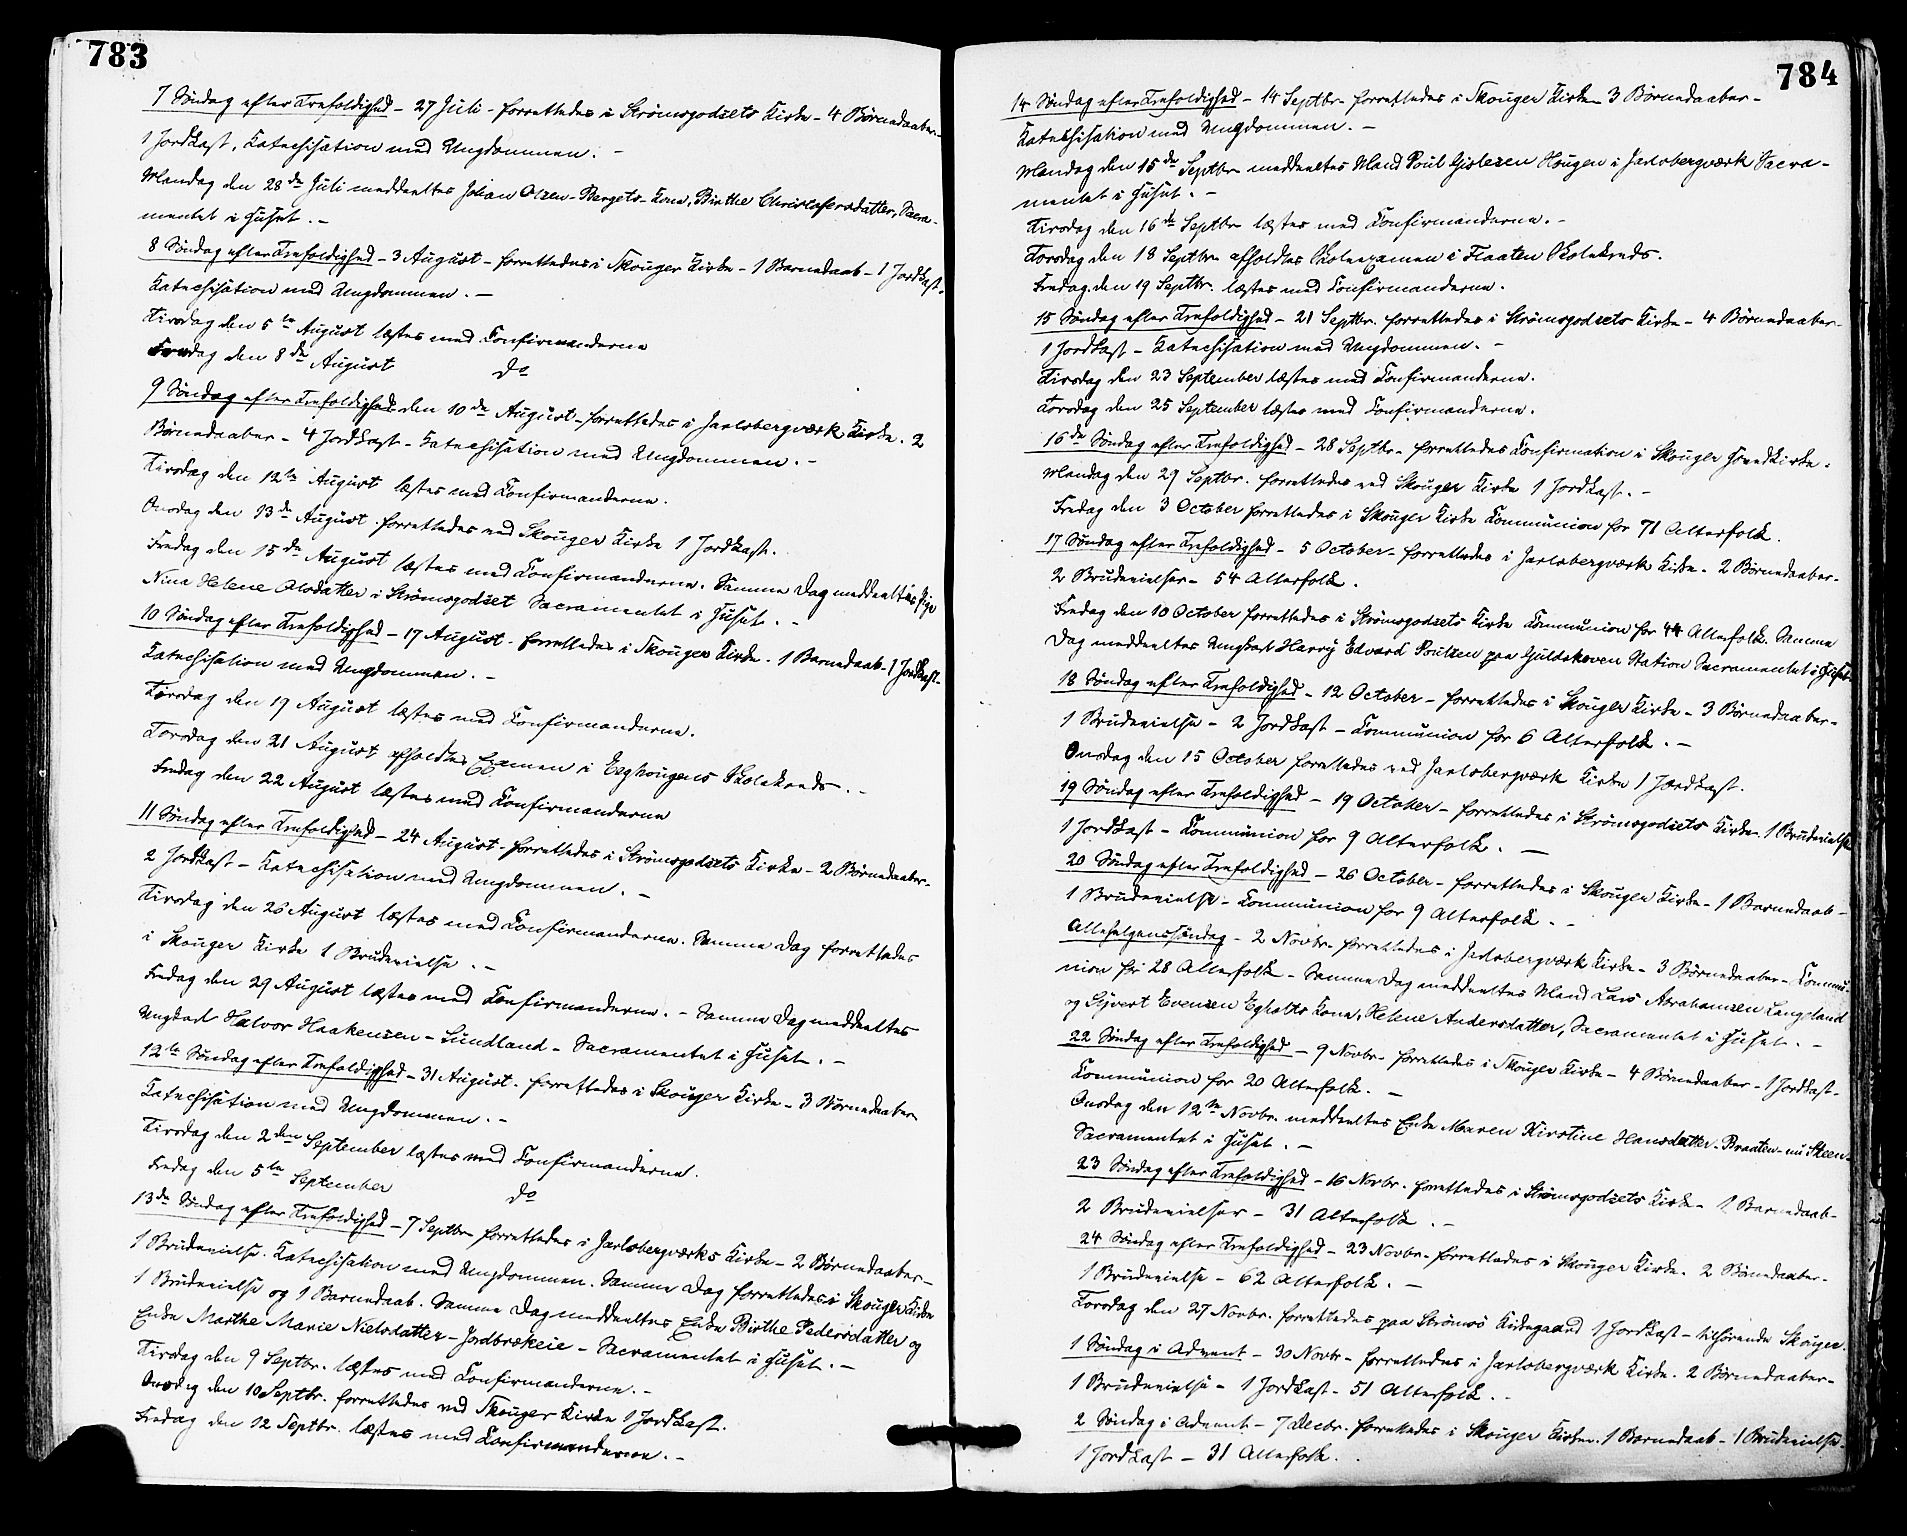 783
7 Søndag efter Trefoldighed – 27 Juli – forrettedes i Strømsgodsets Kirke – 4 Børnedaaber –
1 Jordkast, Katechisation med Ungdommen. –
Mandag den 28de Juli meddeeltes Johan Olsen – Berget's – Kone, Birthe Christofersdatter, Sacra-
mentet i Huset. –
8 Søndag efter Trefoldighed – 3 August – forrettedes i Skouger Kirke – 1 Barnedaab – 1 Jordkast.
Katechisation med Ungdommen. –
Tirsdag den 5te August læstes med Confirmanderne
Fredag den 8de August do
9 Søndag efter Trefoldighed den 10de August – forrettedes i Jarlsbergværk Kirke. 2
Børnedaaber – 4 Jordkast – Katechisation med Ungdommen. –
Tirsdag den 12te August læstes med Confirmanderne.
Onsdag den 13de August forrettedes ved Skouger Kirke 1 Jordkast.
Fredag den 15de August læstes med Confirmanderne. Samme Dag meddeeltes Pige
Nina Helene Olsdatter i Strømsgodset Sacramentet i Huset. –
10 Søndag efter Trefoldighed – 17 August – forrettedes i Skouger Kirke. 1 Barnedaab – 1 Jordkast –
Katechisation med Ungdommen. –
Tirsdag den 19 August læstes med Confirmanderne.
Torsdag den 21 August afholdtes Examen i Eeghougens Skolekreds. –
Fredag den 22 August læstes med Confirmanderne
11 Søndag efter Trefoldighed – 24 August – forrettedes i Strømsgodsets Kirke – 2 Børnedaaber –
2 Jordkast – Katechisation med Ungdommen. –
Tirsdag den 26 August læstes med Confirmanderne. Samme Dag forrettedes
i Skouger Kirke 1 Brudevielse. –
Fredag den 29 August læstes med Confirmanderne. – Samme Dag meddeeltes
Ungkarl Halvor Haakensen – Sundland – Sacramentet i Huset. –
12te Søndag efter Trefoldighed – 31 August. forrettedes i Skouger Kirke – 3 Børnedaaber
Katechisation med Ungdommen. –
Tirsdag den 2den September læstes med Confirmanderne.
Fredag den 5te September do
13de Søndag efter Trefoldighed – 7 Septbr forrettedes i Jarlsbergværks Kirke – 2 Børnedaaber –
1 Brudevielse. Katechisation med Ungdommen. Samme Dag forrettedes i Skouger Kirke
1 Brudevielse og 1 Barnedaab. Samme Dag meddeeltes Enke Birthe Pedersdatter og
Enke Marthe Marie Nielsdatter – Jordbrækeie – Sacramentet i Huset. –
Tirsdag den 9 Septbr. læstes med Confirmanderne. –
Onsdag den 10 Septbr. forrettedes ved Skouger Kirke 1 Jordkast.
Fredag den 12 Septbr. læstes med Confirmanderne. –
784
14 Søndag efter Trefoldighed – 14 Septbr forrettedes i Skouger Kirke 3 Børnedaaber –
Katechisation med Ungdommen. –
Mandag den 15de Septbr meddeeltes Mand Poul Gislesen Hougen i Jarlsbergværk Sacra-
mentet i Huset. –
Tirsdag den 16de Septbr læstes med Confirmanderne. –
Torsdag den 18 Septbr afholdtes Skoleexamen i Flaaten Skolekreds.
Fredag den 19 Septbr. læstes med Confirmanderne.
15 Søndag efter Trefoldighed – 21 Septbr. forrettedes i Strømsgodsets Kirke – 4 Børnedaaber –
1 Jordkast – Katechisation med Ungdommen. –
Tirsdag den 23 September læstes med Confirmanderne.
Torsdag den 25 September læstes med Confirmanderne.
16de Søndag efter Trefoldighed – 28 Septbr – forrettedes Confirmation i Skouger Hovedkirke.
Mandag den 29 Septbr. forrettedes ved Skouger Kirke 1 Jordkast. –
Fredag den 3 October forrettedes i Skouger Kirke Communion for 71 Alterfolk.
17 Søndag efter Trefoldighed – 5 October – forrettedes i Jarlsbergværk Kirke – 2 Børnedaaber –
2 Brudevielser – 54 Alterfolk.
Fredag den 10 October forrettedes i Strømsgodsets Kirke Communion for 44 Alterfolk. Samme
Dag meddeeltes Ungkarl Harry Edvard Poulsen paa Guldskoven Station Sacramentet i Huset.
18 Søndag efter Trefoldighed – 12 October – forrettedes i Skouger Kirke – 3 Børnedaaber –
1 Brudevielse – 2 Jordkast – Communion for 6 Alterfolk. –
Onsdag den 15 October forrettedes ved Jarlsbergværk Kirke 1 Jordkast.
19 Søndag efter Trefoldighed – 19 October – forrettedes i Strømsgodsets Kirke. 1 Brudevielse
1 Jordkast – Communion for 9 Alterfolk. –
20 Søndag efter Trefoldighed – 26 October – forrettedes i Skouger Kirke – 1 Barnedaab –
1 Brudevielse – Communion for 9 Alterfolk. –
Allehelgenssøndag – 2 Novbr forrettedes i Jarlsbergværk Kirke – 3 Børnedaaber – Commu-
nion for 28 Alterfolk – Samme Dag meddeeltes Mand Lars Abrahamsen Langeland
og Syvert Evensen Egholts Kone, Helene Andersdatter, Sacramentet i Huset. –
22 Søndag efter Trefoldighed – 9 Novbr – forrettedes i Skouger Kirke – 4 Børnedaaber – 1 Jordkast –
Communion for 20 Alterfolk. –
Onsdag den 12te Novbr. meddeeltes Enke Maren Kirstine Hansdatter – Braaten – nu Skeen –
Sacramentet i Huset. –
23 Søndag efter Trefoldighed – 16 Novbr. forrettedes i Strømsgodsets Kirke – 1 Barnedaab –
2 Brudevielser – 31 Alterfolk. –
24 Søndag efter Trefoldighed – 23 Novbr – forrettedes i Skouger Kirke. 2 Børnedaaber –
1 Brudevielse – 62 Alterfolk. –
Torsdag den 27 Novbr. forrettedes paa Strømsø Kirkegaard 1 Jordkast – tilhørende Skouger.
1 Søndag i Advent – 30 Novbr – forrettedes i Jarlsbergværk Kirke. 2 Børnedaaber –
1 Brudevielse – 1 Jordkast – 51 Alterfolk. –
2 Søndag i Advent – 7 Decbr. forrettedes i Skouger Kirke. 1 Barnedaab – 1 Brudevielse –
1 Jordkast – 31 Alterfolk.